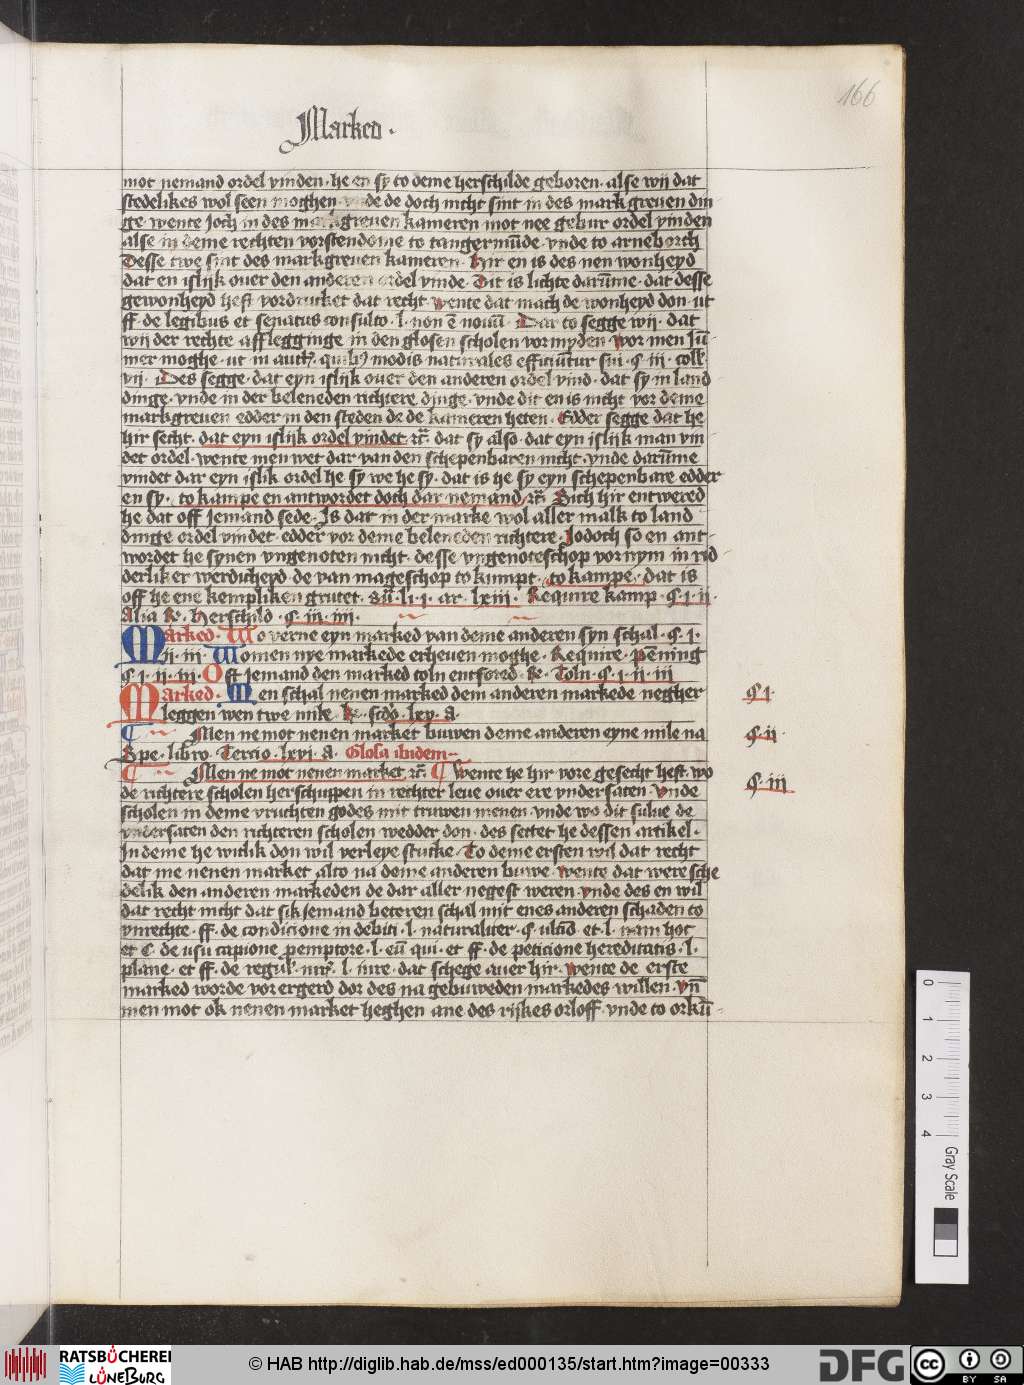 166
Marked.
mot nemand ordel vinden. he en sy to deme herschilde geboren. alse wij dat
stedelikes wol seen moghen. vnde de doch nicht sint in des mark greuen din
ge. wente Joch in des markgreuen kameren mot nee gebur ordel vinden
alse in deme rechten vorstendome to tangermu̅de vnde to arneborch
Desse twe sint des markgreuen kameren. Hir en is des nen wonheyd
dat en islijk ouer den anderen ordel vinde. Dit is lichte daru̅me. dat desse
gewonheyd heft vordrucket dat recht wente dat mach de wonheyd don. ut
ff. de legibus et senatus consulto. l. non e̅ nouu̅. Dar to segge wij. dat
wij der rechte afflegginge in den glosen scholen vormyden wor men Ju̅
mer moghe. ut in aut. quib9 modis naturales efficiu̅tur sui. §. iij. coll.
vij. Des segge. dat eyn islijk ouer den anderen ordel vind. dat sy in land
dinge. vnde in der beleneden richtere dinge. vnde dit en is nicht vor deme
markgreuen edder in den steden de de kameren heten. Edder segge dat he
hir secht. dat eyn islijk ordel vindet etc̅. dat sy also. dat eyn islijk man vin
det ordel. wente men wet dar van den schepenbaren nicht. vnde daru̅me
vindet dar eyn islik ordel he sy we he sy. dat is he sy eyn schepenbare edder
en sy. to kampe en antwordet doch dar nemand etc̅. Sich hir entwered
he dat off Jemand sede. Is dat in der marke wol aller malk to land
dinge ordel vindet. edder vor deme beleneden richtere. Jodoch so en ant-
wordet he synen vngenoten nicht. desse vngenoteschop vornym in rid
derliker werdicheyd. de van mageschop to kumpt. to kampe. dat is
off he ene kempliken grutet. su̅. li. j. ar. lxiij. Require kamp. §. j. ij.
Alia R. Herschild. §. iij. iiij.
Marked. Wo verne eyn marked van deme anderen syn schal. §. j.
ij. iij. Women nye markede erheuen moghe. Require. Pe̅ning
§. j. ij. iij. Oft Jemand den marked toln entford. R. Toln. §. j. ij. iij
Marked. Men schal nenen marked dem anderen markede negher
leggen wen twe mile. R. scdo. lxv. A.
§ j.
Men ne mot nenen market buwen deme anderen eyne mile na
§. ij
Spe. libro. Tercio. lxvj. A. Glosa ibidem
Men ne mot nenen market etc̅. wente he hir vore gesecht heft. wo
§. iij
de richtere scholen herschuppen in rechter leue ouer ere vndersaten. Vnde
scholen in deme vruchten godes mit truwen menen. vnde wo dit sulue de
vndersaten den richteren scholen wedder don. des settet he dessen artikel.
In deme he witlik don wil verleye stucke. To deme ersten wil dat recht
dat me nenen market alto na deme anderen buwe. wente dat were sche
delik den anderen markeden de dar aller negest weren. vnde des en wil
dat recht nicht dat sik Jemand beteren schal mit enes anderen schaden to
vnrechte. ff. de condicione in debiti. l. naturaliter. §. et. l. nam hoc
et C. de usu capione pemptore. l. eu̅ qui. et ff. de peticione hereditatis. l.
plane. et ff. de regul. iur. l. iure. dat schege auer hir. wente de erste
marked worde vor ergerd dor des na gebuweden markedes willen. vn̅
men mot ok nenen market heghen ane des rijkes orloff. vnde to orku̅
0 1 2 3 4
Gray Scale
RATSBÜCHEREI
LÜNEBURG
© HAB http://diglib.hab.de/mss/ed000135/start.htm?image=00333
DFG
cc BY SA